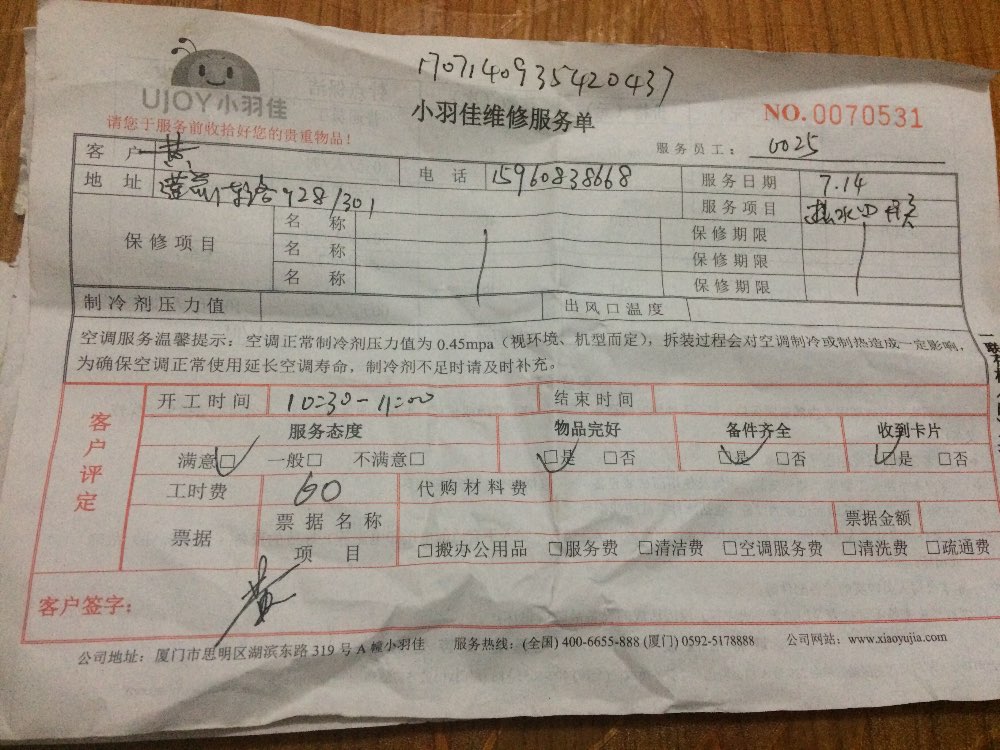 170714093542043​7
UJOY小羽佳
小羽佳维修服务单
NO.0070531
请您于服务前收拾好您的贵重物品！
服务员工： 0025
客户 黄
电话 15960838668
服务日期 7.14
地址 928/301
服务项目
保修项目
名称 保修期限
名称 保修期限
名称 保修期限
制冷剂压力值 出风口温度
空调服务温馨提示：空调正常制冷剂压力值为 0.45mpa（视环境、机型而定），拆装过程会对空调制冷或制热造成一定影响，
为确保空调正常使用延长空调寿命，制冷剂不足时请及时补充。
客户评定
开工时间 10:30-11:00 结束时间
服务态度 物品完好 备件齐全 收到卡片
满意□ 一般□ 不满意□ □是 □否 □是 □否 □是 □否
工时费 60 代购材料费
票据 票据名称 票据金额
项目 □搬办公用品 □服务费 □清洁费 □空调服务费 □清洗费 □疏通费
客户签字： 黄
公司地址：厦门市思明区湖滨东路 319 号 A 幢小羽佳 服务热线：(全国) 400-6655-888 (厦门) 0592-5178888 公司网站：www.xiaoyujia.com